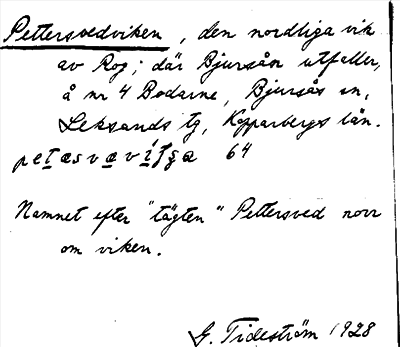 Pettersvedviken, den nordliga vik
av Rog; där Bjursån utfaller,
å nr 4 Bodarne, Bjursås sn,
Leksands tg, Kopparbergs län.
64
Namnet efter "tägten" Pettersved norr
om viken.
G. Tideström 1928